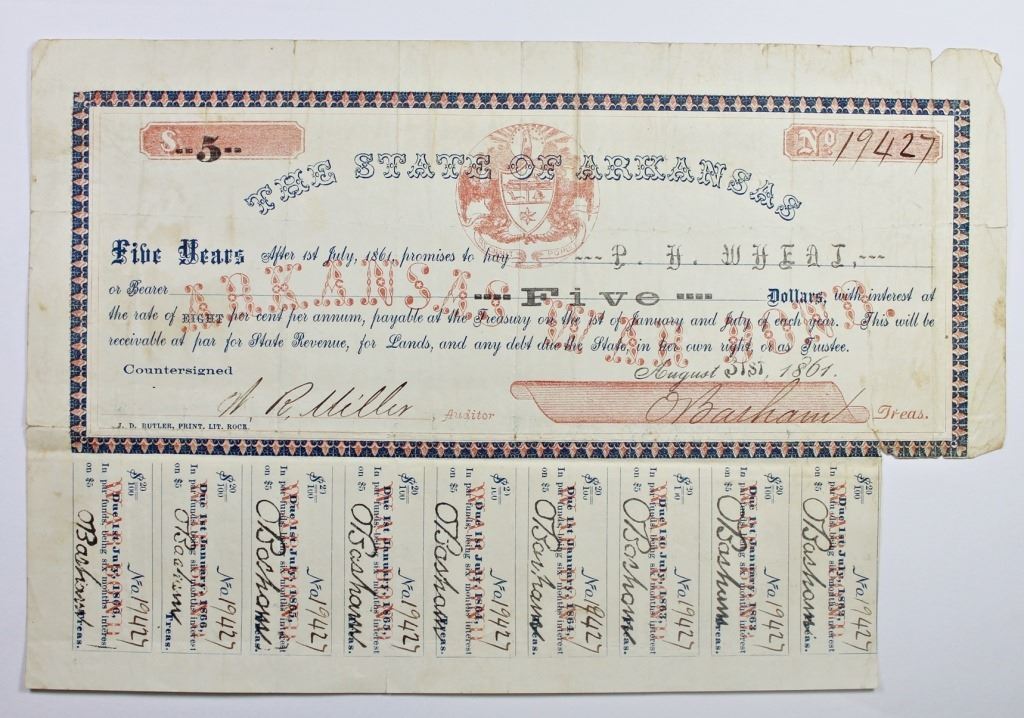 $ --5--
No 19427
THE STATE OF ARKANSAS
Five Years After 1st July, 1861, promises to pay --- P. H. WHEAT, ---
or Bearer ---- Five ---- Dollars, with interest at
the rate of EIGHT per cent per annum, payable at the Treasury on the 1st of January and July of each year. This will be
receivable at par for State Revenue, for Lands, and any debt due the State, in her own right, or as Trustee.
ARKANSAS WAR BOND.
Countersigned
August 31ST, 1861.
W. R. Miller, Auditor
O Basham Treas.
J. D. BUTLER, PRINT. LIT. ROCK.
$ 20/100 No 19427
Due 1st July, 1866,
In par funds, being six months interest
on $5 O Basham Treas.
$ 20/100 No 19427
Due 1st January, 1866,
In par funds, being six months interest
on $5 O Basham Treas.
$ 20/100 No 19427
Due 1st July, 1865,
In par funds, being six months interest
on $5 O Basham Treas.
$ 20/100 No 19427
Due 1st January, 1865,
In par funds, being six months interest
on $5 O Basham Treas.
$ 20/100 No 19427
Due 1st July, 1864,
In par funds, being six months interest
on $5 O Basham Treas.
$ 20/100 No 19427
Due 1st January, 1864,
In par funds, being six months interest
on $5 O Basham Treas.
$ 20/100 No 19427
Due 1st July, 1863,
In par funds, being six months interest
on $5 O Basham Treas.
$ 20/100 No 19427
Due 1st January, 1863,
In par funds, being six months interest
on $5 O Basham Treas.
$ 20/100 No 19427
Due 1st July,
In par funds, being six months interest
on $5 O Basham Treas.